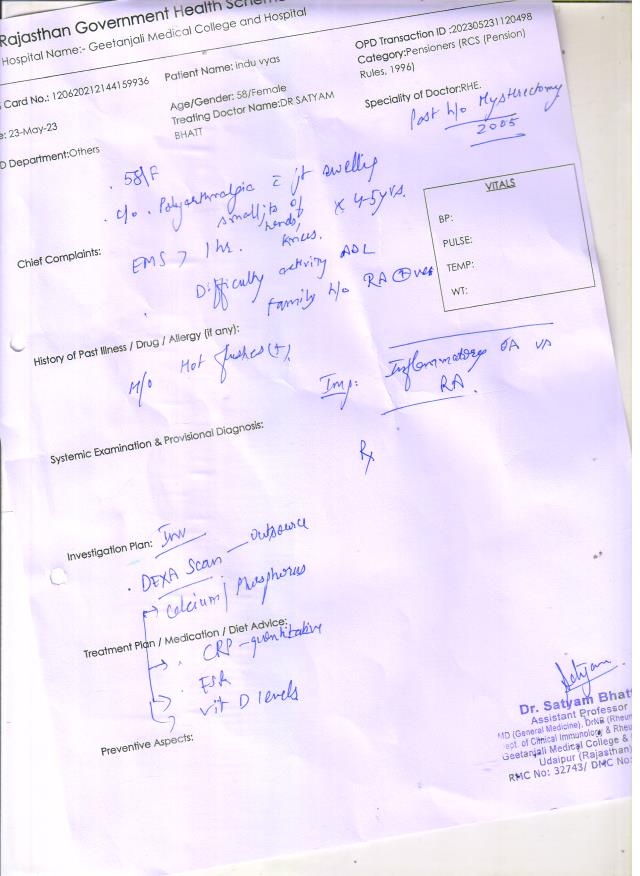 Rajasthan Government Health Schem
Hospital Name:- Geetanjali Medical College and Hospital
Card No.: 120620212144159936
Patient Name: indu vyas
OPD Transaction ID :202305231120498
Category:Pensioners (RCS (Pension) Rules, 1996)
e: 23-May-23
Age/Gender: 58/Female
Treating Doctor Name:DR SATYAM BHATT
Speciality of Doctor:RHE.
D Department:Others
Post h/o Hysterectomy
2005
. 58/F
. c/o . Polyarthralgia c jt swelling
small jts of hands, knees. x 4-5 yrs.
Chief Complaints:
EMS > 1 hr.
. Difficulty activity ADL
family h/o RA ⊕ve
VITALS
BP:
PULSE:
TEMP:
WT:
History of Past Illness / Drug / Allergy (if any):
H/o Hot flushes (+).
Imp: Inflammatory OA v/s
RA.
Systemic Examination & Provisional Diagnosis:
Rx
Investigation Plan: Inv
. DEXA Scan — outsource
→ Calcium / Phosphorus
Treatment Plan / Medication / Diet Advice:
→ . CRP - quantitative
→ . ESR
→ vit D levels
Preventive Aspects:
Satyam
Dr. Satyam Bhatt
Assistant Professor
MD (General Medicine), DrNB (Rheum
ept. of Clinical Immunology & Rheu
Geetanjali Medical College &
Udaipur (Rajasthan)
RMC No: 32743/ DMC No: